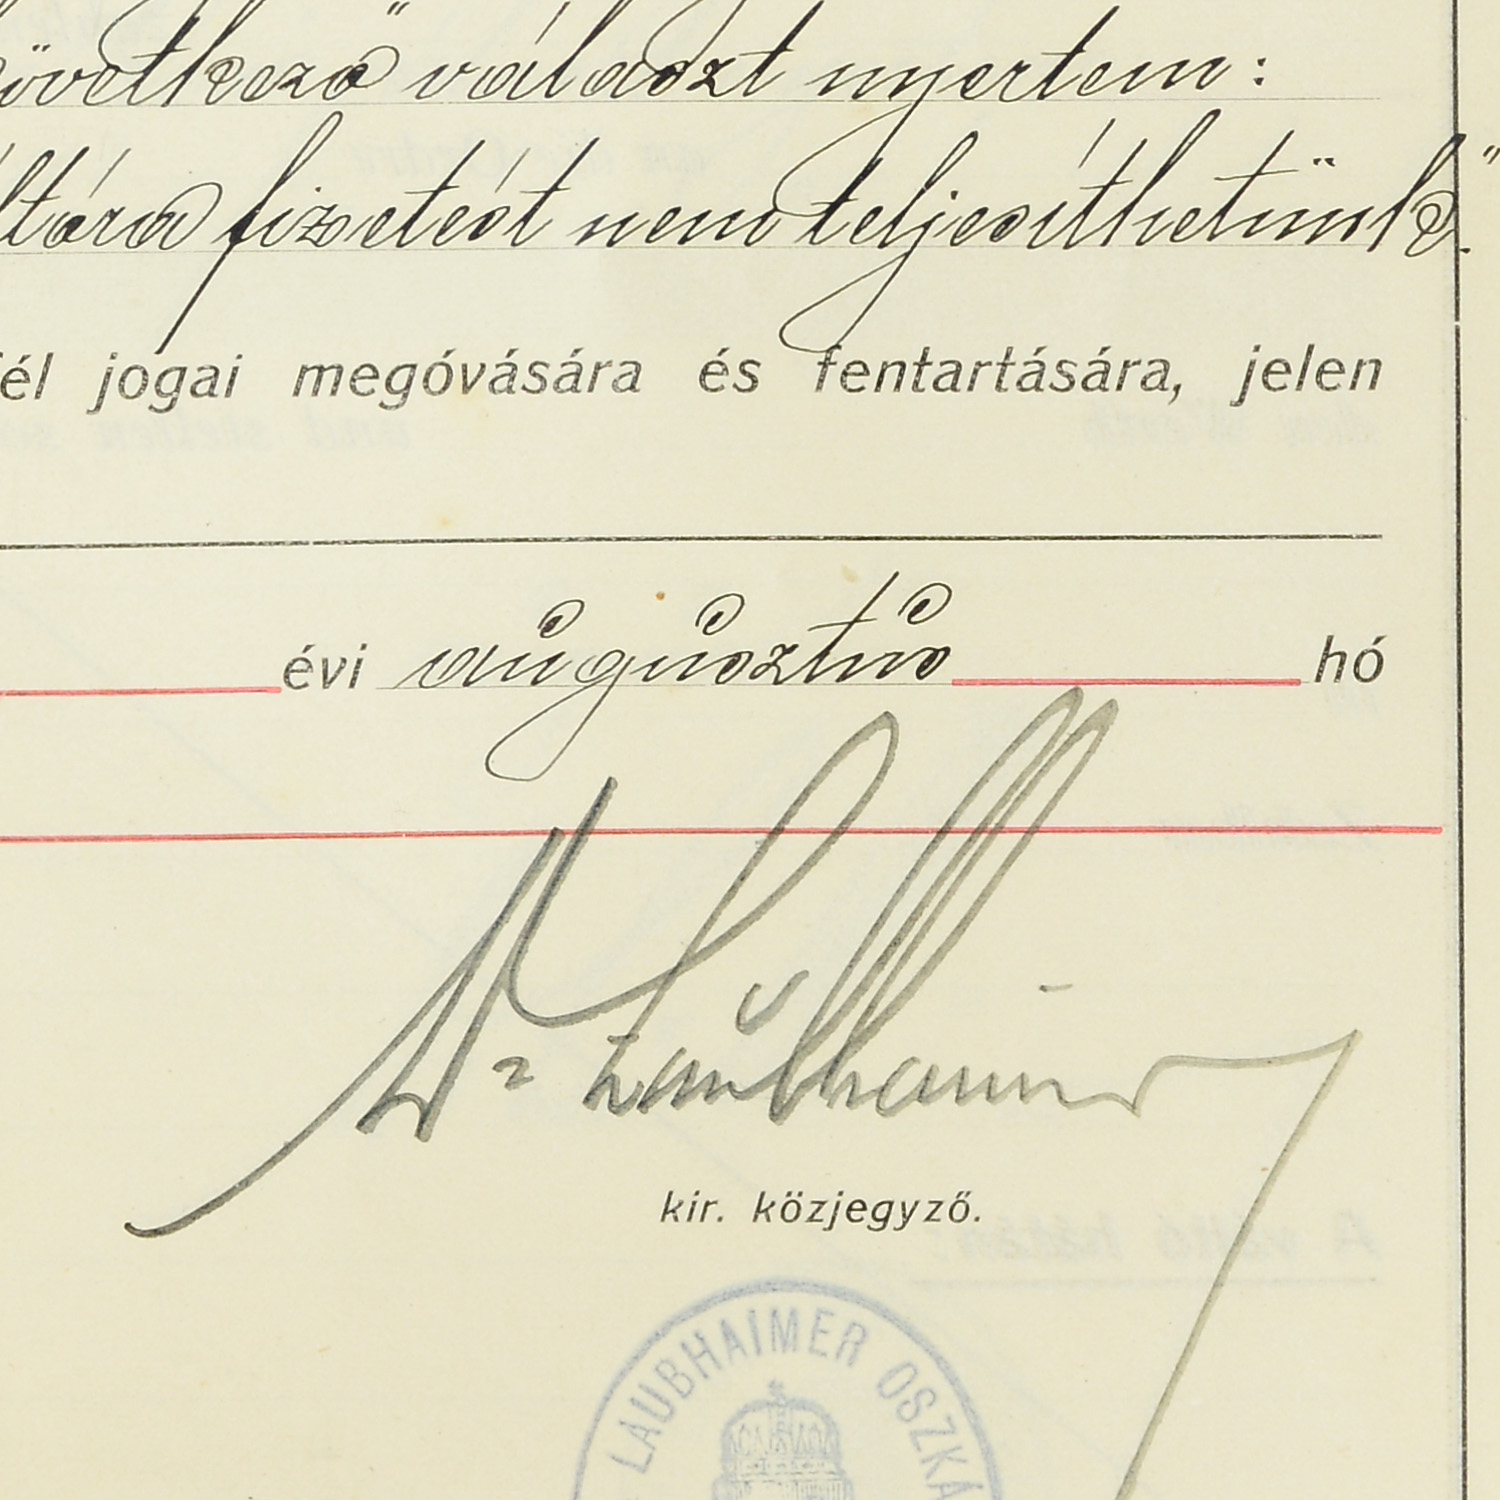 következő választ nyertem:
ltára fizetést nem teljesíthetünk."
fél jogai megóvására és fentartására, jelen
évi augusztus hó
Dr Laubhaimer
kir. közjegyző.
LAUBHAIMER OSZKÁ